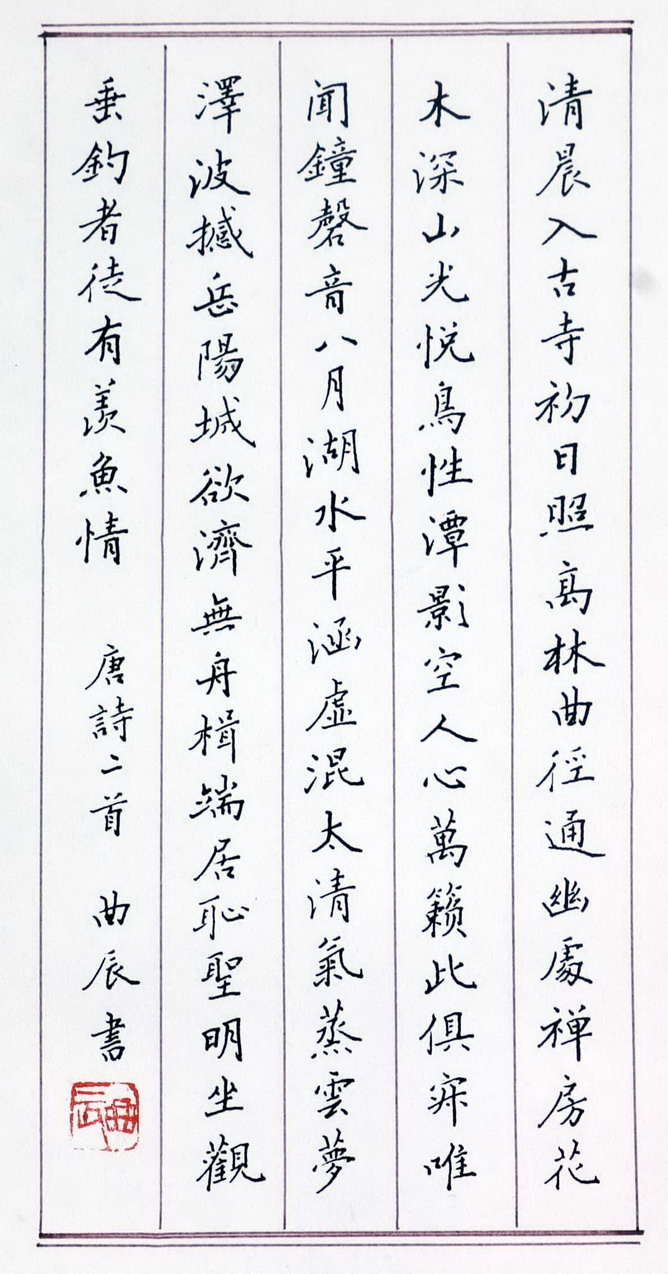 清晨入古寺初日照高林曲徑通幽處禅房花
木深山光悅鳥性潭影空人心萬籟此俱寂唯
闻鐘磬音八月湖水平涵虛混太清氣蒸雲夢
澤波撼岳陽城欲濟無舟楫端居恥聖明坐觀
垂釣者徒有羨魚情 唐詩二首 曲辰書